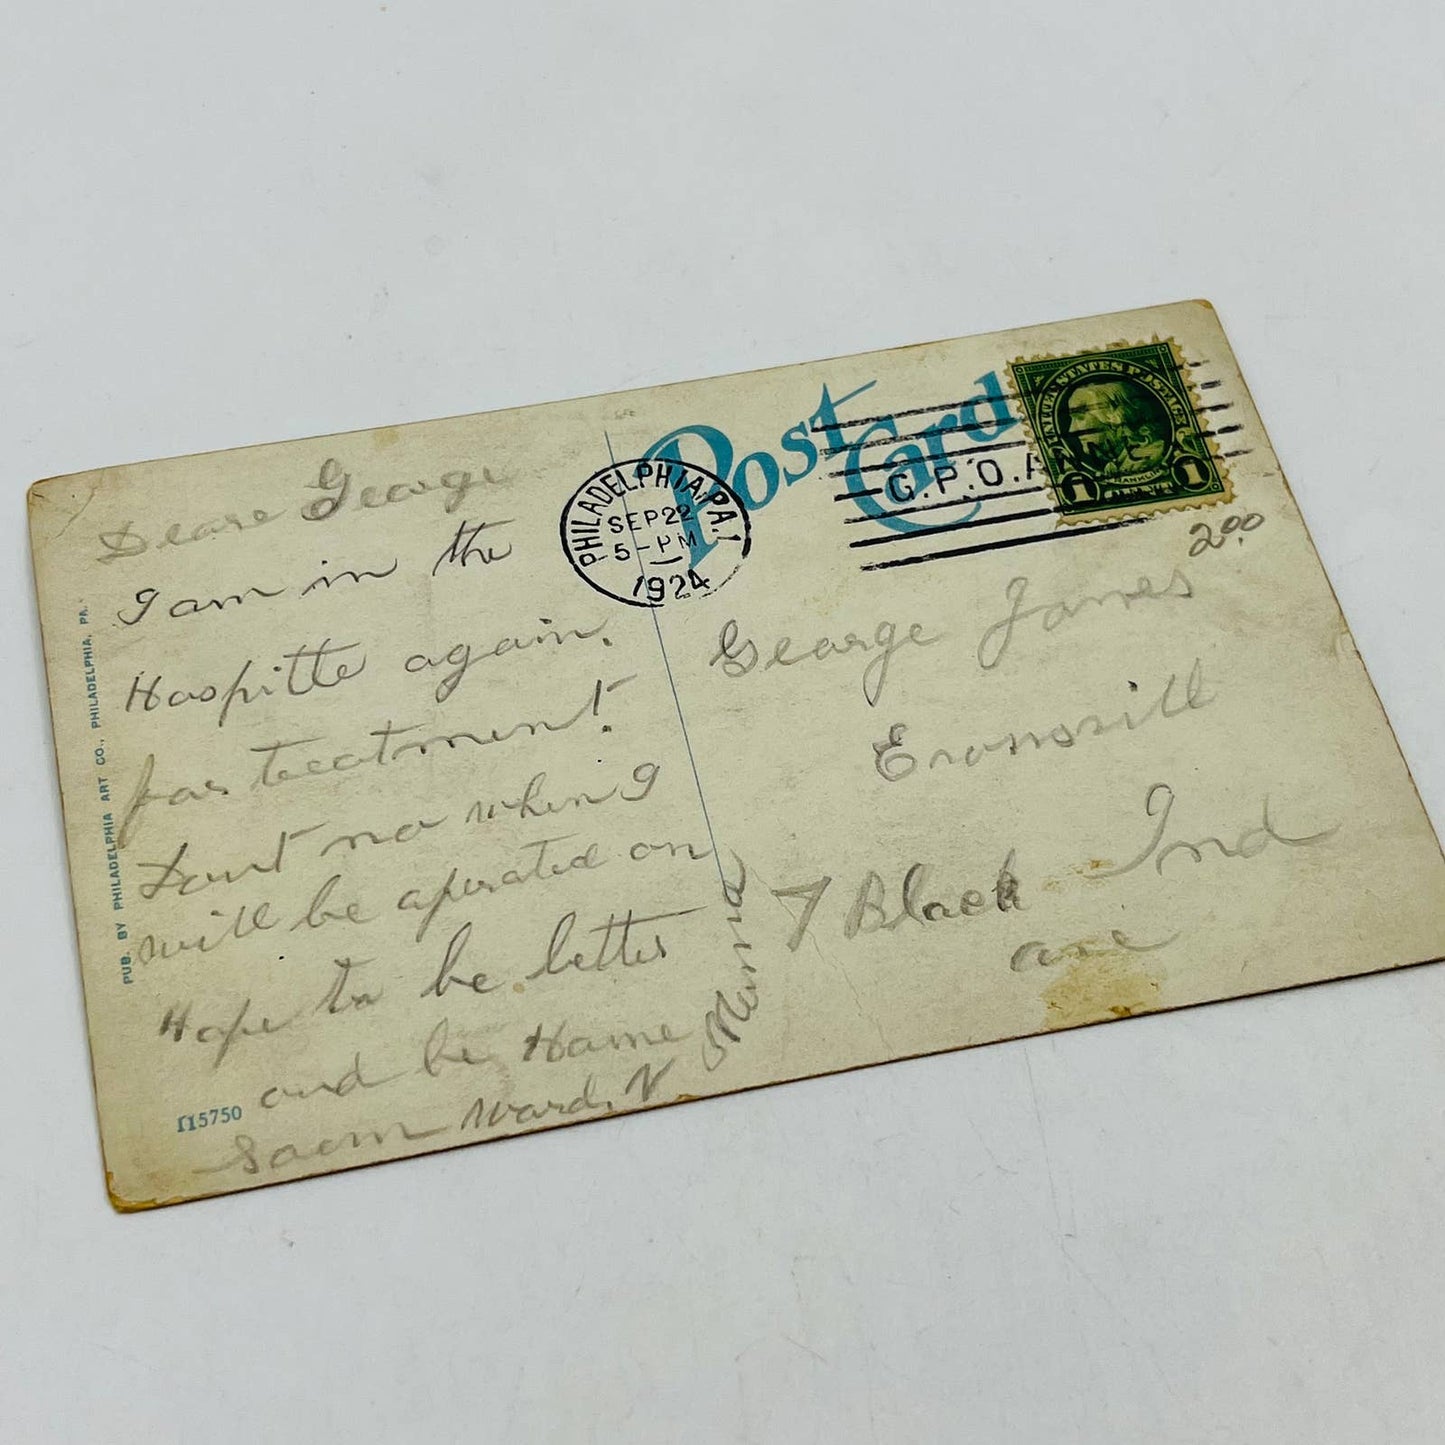 Post Card
PHILADELPHIA, PA. 1
SEP 22
5-PM
1924
G.P.O. ANNEX
UNITED STATES POSTAGE
1 1
2.00
Deare George
I am in the
Hospitte again.
for treatment.
Dont no when I
will be aperated on
Hope to be better
and be Home
Saom Ward. V
George James
Evansvill
Ind
7 Black
ave
PUB. BY PHILADELPHIA ART CO., PHILADELPHIA, PA.
115750